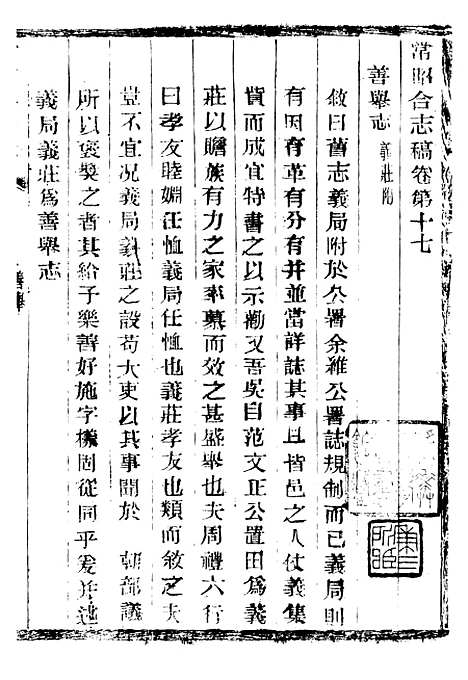 常昭合志稿卷第十七
善舉志 義莊附
敘曰舊志義局附於公署余維公署誌規制而已義局則
有因有革有分有并並當詳誌其事且皆邑之人仗義集
貲而成宜特書之以示勸又吾吳自范文正公置田為義
莊以贍族有力之家率慕而效之甚盛舉也夫周禮六行
曰孝友睦婣任恤義局任恤也義莊孝友也類而敘之夫
豈不宜況義局義莊之設苟大吏以其事聞於 朝部議
所以襃獎之者其給予樂善好施字樣固從同乎爰并述
義局義莊為善舉志